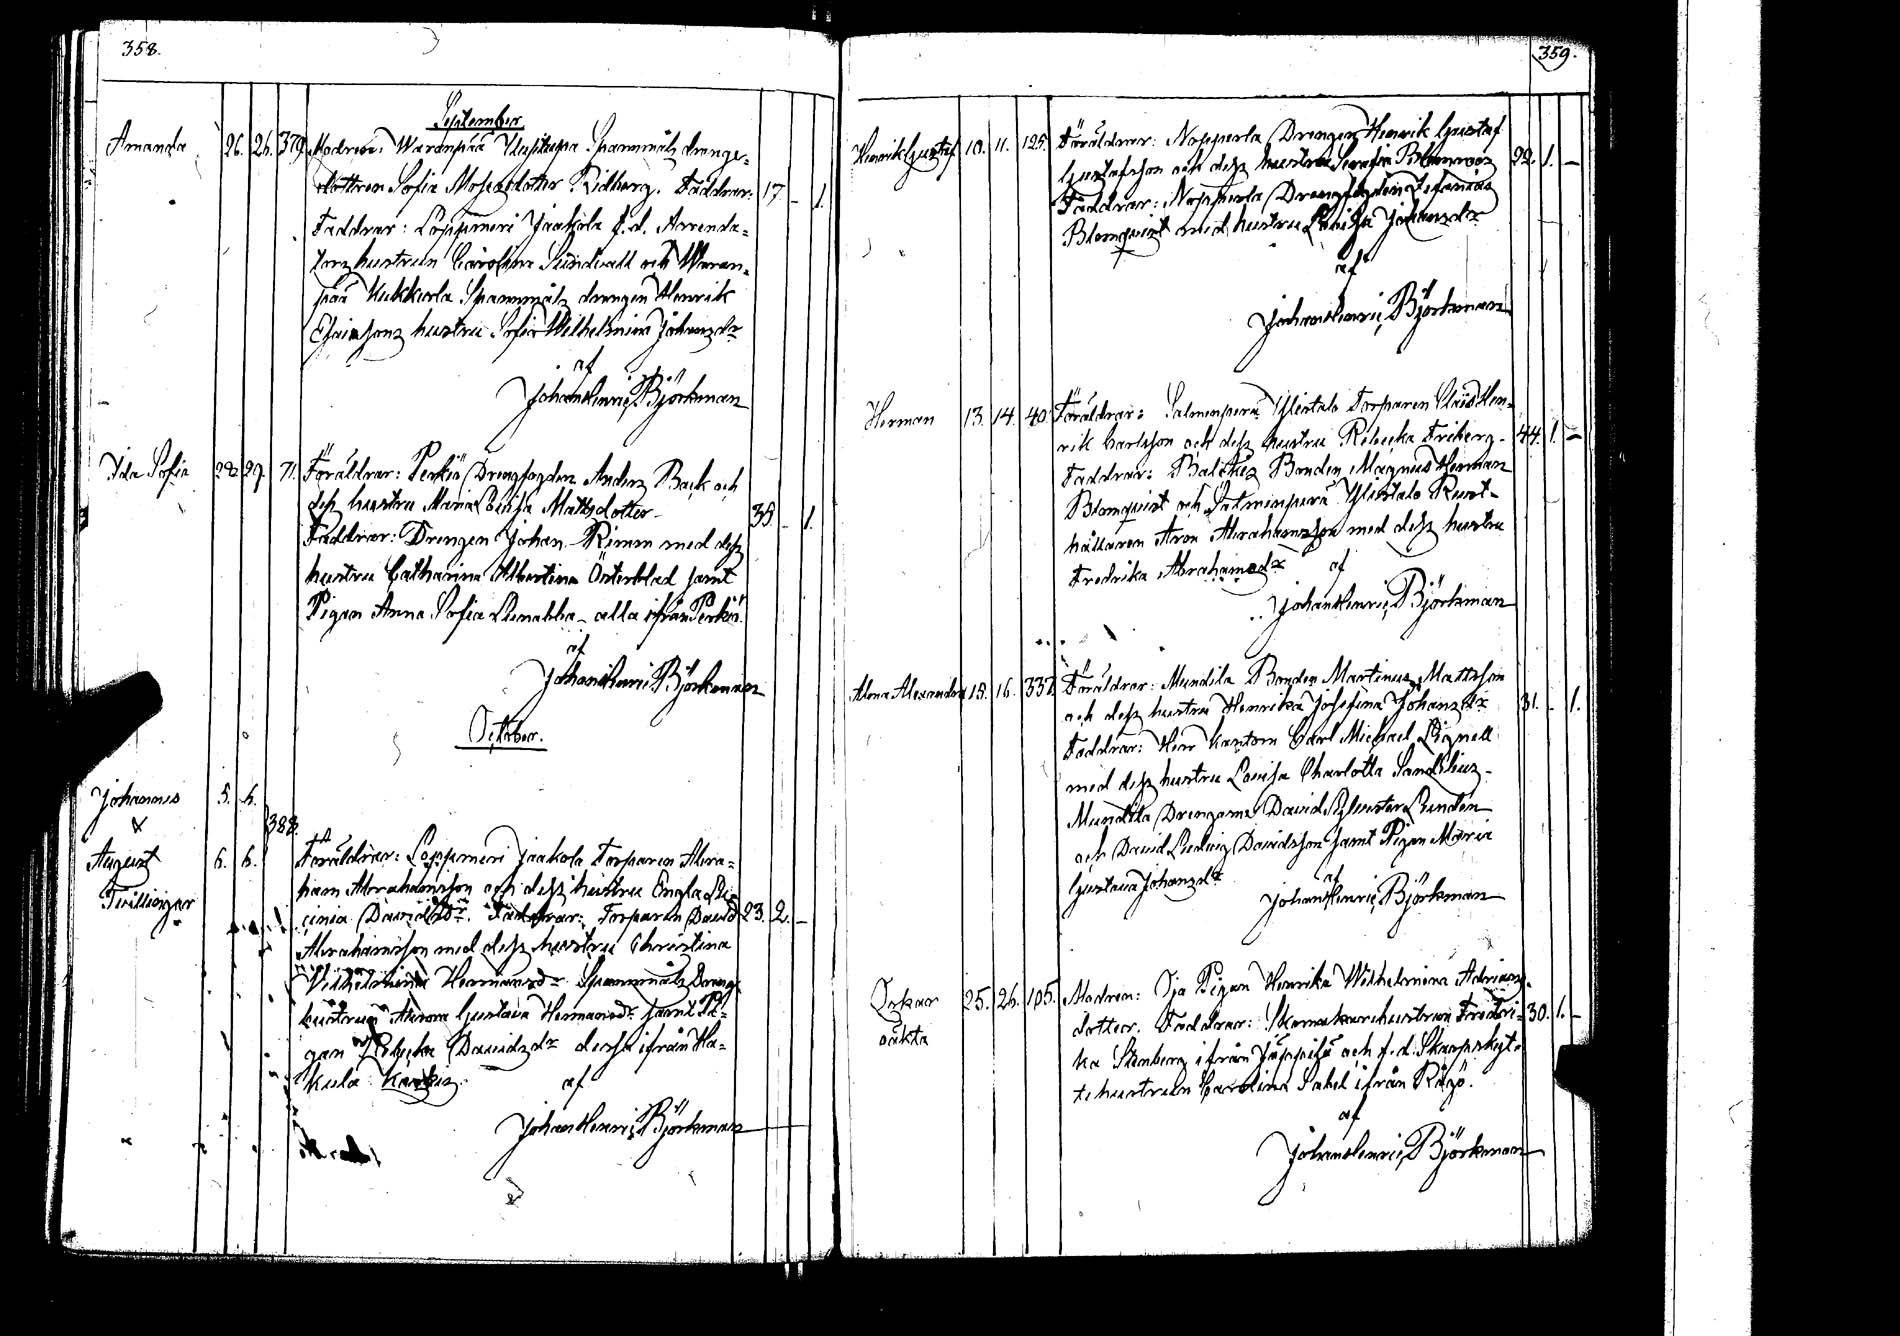 358.
September
Amanda 26. 26. 379. Modren: Waranpää Uusitupa Spanmåls drengs-
dottren Sofia Mosesdotter Ridberg. Faddrar: 17 - 1.
Faddrar: Loppmeri Jaakola f.d. Arrenda-
torshustrun Carolina Sundvall och Waran-
pää Kukkurla Spanmåls drengen Henrik
Esaiassons hustru Sofia Wilhelmina Johansdr
af
Johan Henric Björkman
Ida Sofia 28 29. 71. Föräldrar: Perkiö Drengfogden Anders Back och
dess hustru Maria Lovisa Mattsdotter - 35. - 1.
Faddrar: Drengen Johan Rimm med dess
hustru Catharina Albertina Österblad samt
Pigan Anna Sofia - alla ifrån Perkiö.
af
Johan Henric Björkman
October.
Johannes 5. 6.
&
388.
August 6. 6. Föräldrar: Loppmeri Jaakola Torparen Abra-
ham Abrahamsson och dess hustru Engla Lu-
Tvillingar
cinia Davidsdr. Faddrar: Torparen David 23. 2. -
Abrahamsson med dess hustru Christina
Vilhelmina Hermansdr Spanmåls Drengs
hustrun Aurora Gustava Hermansdr samt Pi-
gan Rebecka Davidsdr dessa ifrån Ha-
kula
af
Johan Henric Björkman
359.
Henrik Gustaf 10. 11. 125. Föräldrar: Nopperla Drengen Henrik Gustaf
Gustafsson och dess hustru Serafia Blomroos 22. 1. -
Faddrar: Nopperla Drengfogden Zefanias
Blomquist med hustru Lovisa Johansdr
af
Johan Henric Björkman
Herman 13. 14. 40. Föräldrar: Salmenperä Ylistalo Torparen Claës Hen-
rik Carlsson och dess hustru Rebecka Friberg - 44. 1. -
Faddrar: Bonden Magnus Herman
Blomquist och Salmenperä Ylistalo Rust-
hållaren Aron Abrahamsson med dess hustru
Fredrika Abrahamsdr af
Johan Henric Björkman
Alma Alexandra 15. 16. 337. Föräldrar: Mundila Bonden Martinus Mattsson
och dess hustru Henrika Josefina Johansdr 31. - 1.
Faddrar: Herr Kantorn Carl Michael Lignell
med dess hustru Lovisa Charlotta
Mundila Drengarne David Sylvester Lindén
och David Ludvig Davidsson samt Pigan Maria
Gustava Johansdr af
Johan Henric Björkman
Oskar 25. 26. 105. Modren: Oja Pigan Henrika Wilhelmina Adrians-
oäkta
dotter. Faddrar: Skomakarehustrun Fredri- 30. 1. -
ka Stenberg ifrån Jäppilä och f.d. Skarpskyt-
tehustrun Carolina Sahel ifrån Rägö.
af
Johan Henric Björkman